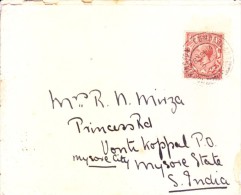 Mrs R. N. Mirza
Princess Rd
Vontikoppal P.O.
Mysore City Mysore State
S. India